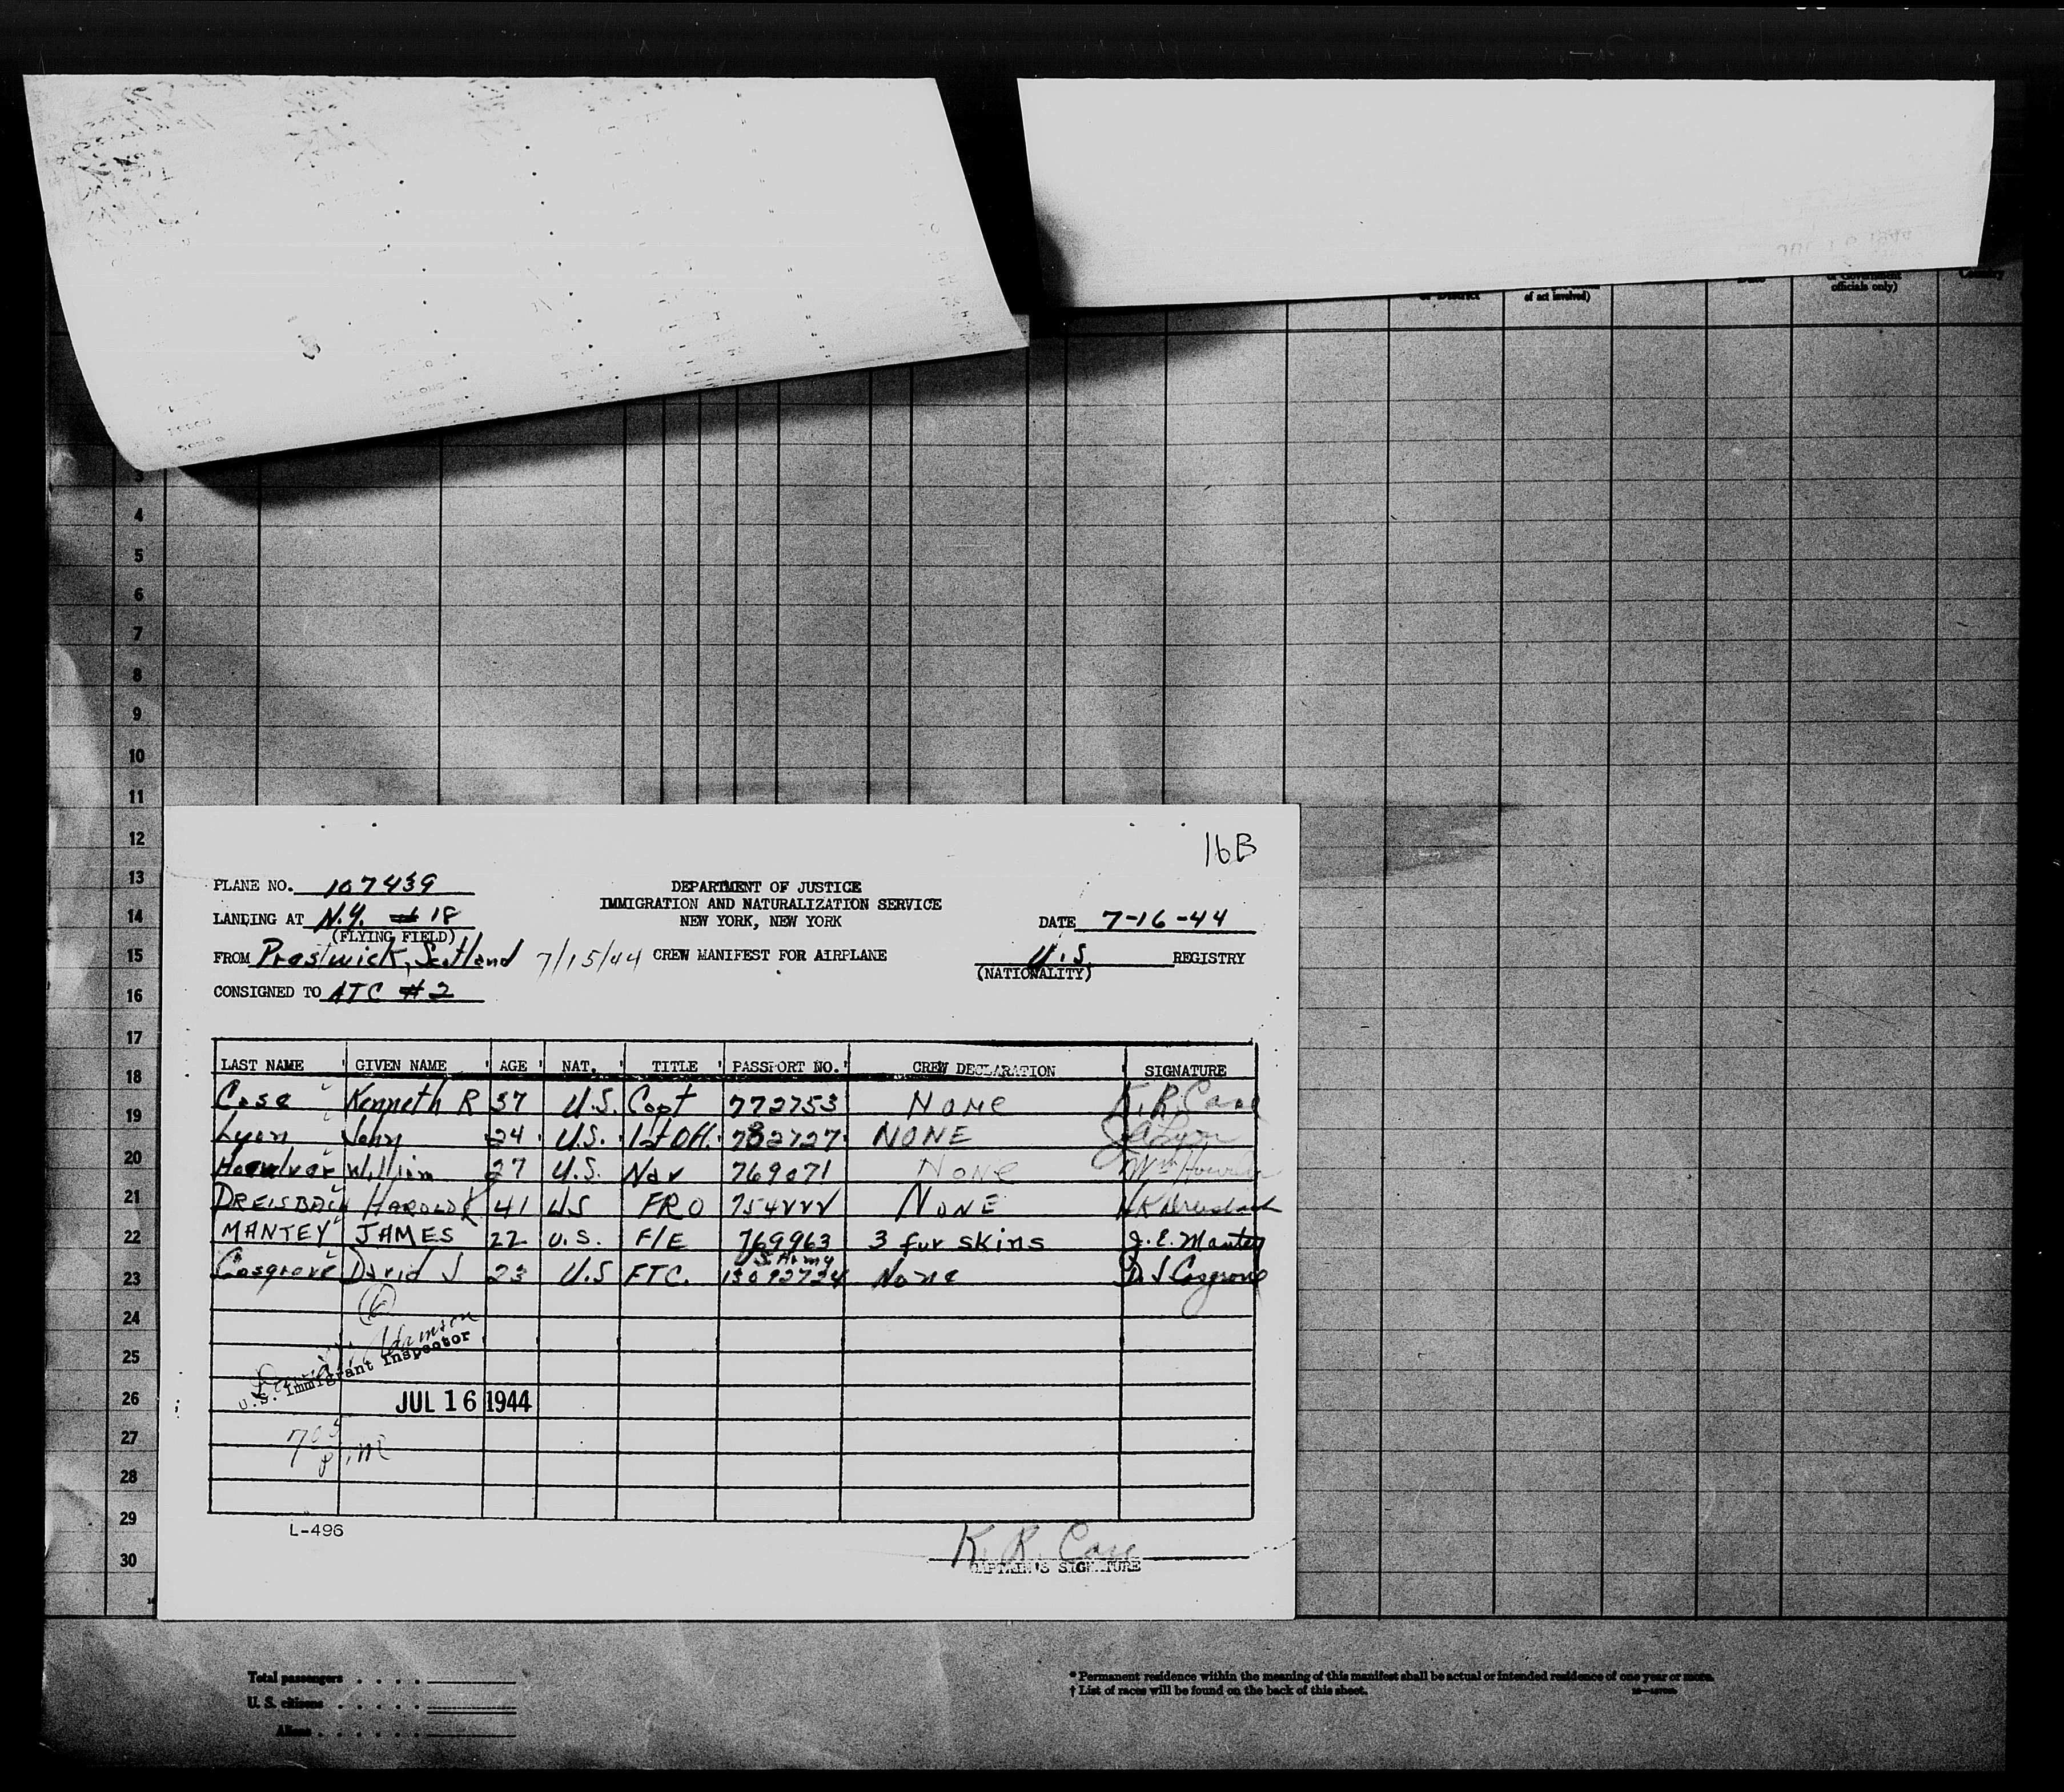 of act involved)
officials only)
Country
4
5
6
7
8
9
10
11
12
13
14
15
16
17
18
19
20
21
22
23
24
25
26
27
28
29
30
16B
PLANE NO. 107439
DEPARTMENT OF JUSTICE
IMMIGRATION AND NATURALIZATION SERVICE
LANDING AT N.Y. # 18
NEW YORK, NEW YORK
DATE 7-16-44
(FLYING FIELD)
FROM Prestwick, Scotland 7/15/44 CREW MANIFEST FOR AIRPLANE
U.S. REGISTRY
(NATIONALITY)
CONSIGNED TO ATC #2
LAST NAME GIVEN NAME AGE NAT. TITLE PASSPORT NO. CREW DECLARATION SIGNATURE
Case Kenneth R 37 U.S. Capt 772753 None K. R. Case
Lyon John 24 U.S. 1st Off. 732727 NONE
William 27 U.S. Nav 769071 None
DREISBACH HAROLD K 41 US FRO 754222 NONE HK Dreisbach
MANTEY JAMES 22 U.S. F/E 769963 3 fur skins J. E. Mantey
U.S. Army
Cosgrove David J 23 U.S FTC. 13092724 None D J Cosgrove
(6)
Adamson
U.S. Immigrant Inspector
JUL 16 1944
7 05
p.m
L-496
K. R. Case
CAPTAIN'S SIGNATURE
Total passengers
U. S. citizens
Aliens
* Permanent residence within the meaning of this manifest shall be actual or intended residence of one year or more.
† List of races will be found on the back of this sheet.